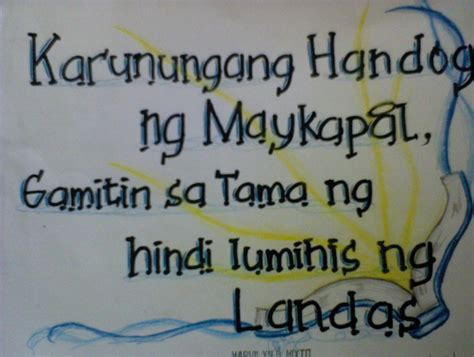 Karunungang Handog
ng Maykapal,
Gamitin sa Tama ng
hindi lumihis ng
Landas